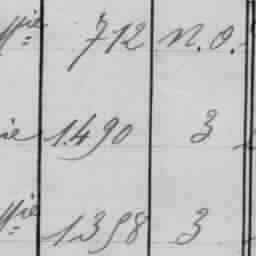 ffie 712 N.O.
ie 1490 3
ffie 1398 3